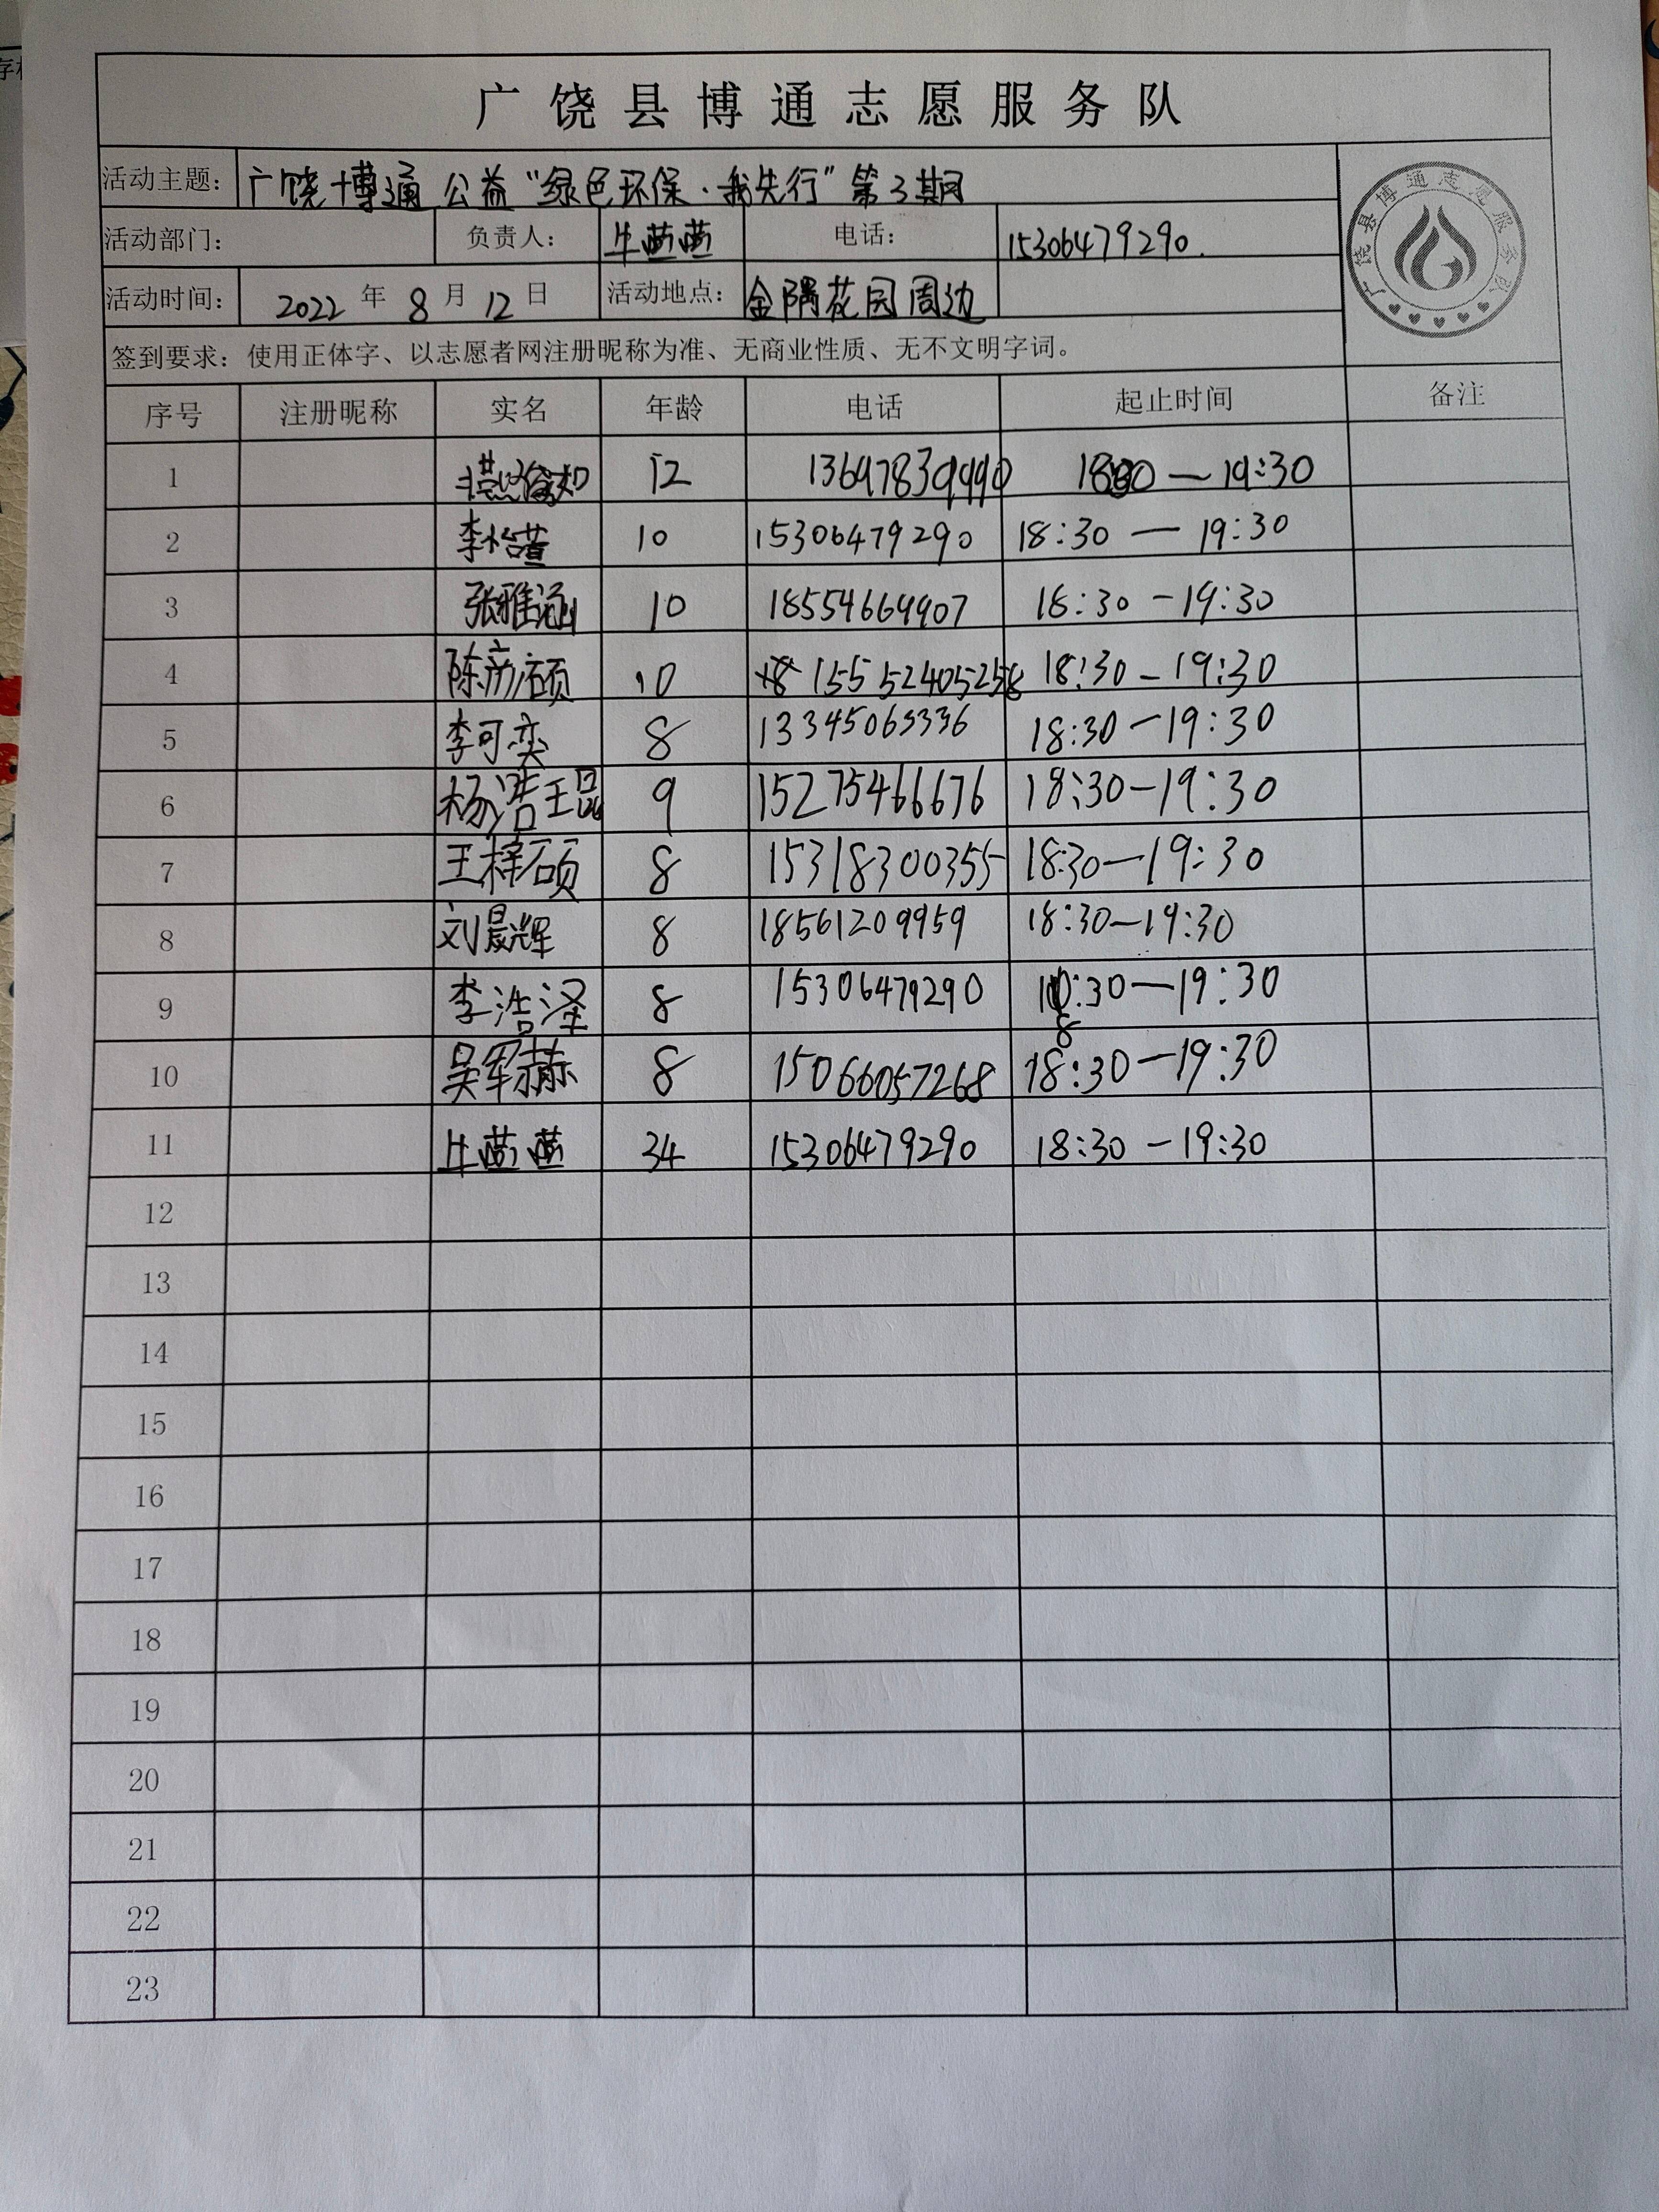 广饶县博通志愿服务队
活动主题: 广饶博通公益“绿色环保·我先行”第3期
活动部门: 负责人: 牛茜茜 电话: 15306479290.
活动时间: 2022 年 8 月 12 日 活动地点: 金隅花园周边
广饶县博通志愿服务队
签到要求: 使用正体字、以志愿者网注册昵称为准、无商业性质、无不文明字词。
序号 注册昵称 实名 年龄 电话 起止时间 备注
1 12 19:30
2 李怡萱 10 15306479290 18:30 — 19:30
3 张雅涵 10 18554669907 18:30 - 19:30
4 陈彦硕 10 18:30 - 19:30
5 李可奕 8 13345065336 18:30 - 19:30
6 杨浩琨 9 15275466676 18:30 - 19:30
7 王梓硕 8 15318300355 18:30 — 19:30
8 刘晨辉 8 18561209959 18:30 — 19:30
9 李浩泽 8 15306479290 18:30 — 19:30
10 吴军赫 8 15066057268 18:30 — 19:30
11 牛茜茜 34 15306479290 18:30 - 19:30
12
13
14
15
16
17
18
19
20
21
22
23